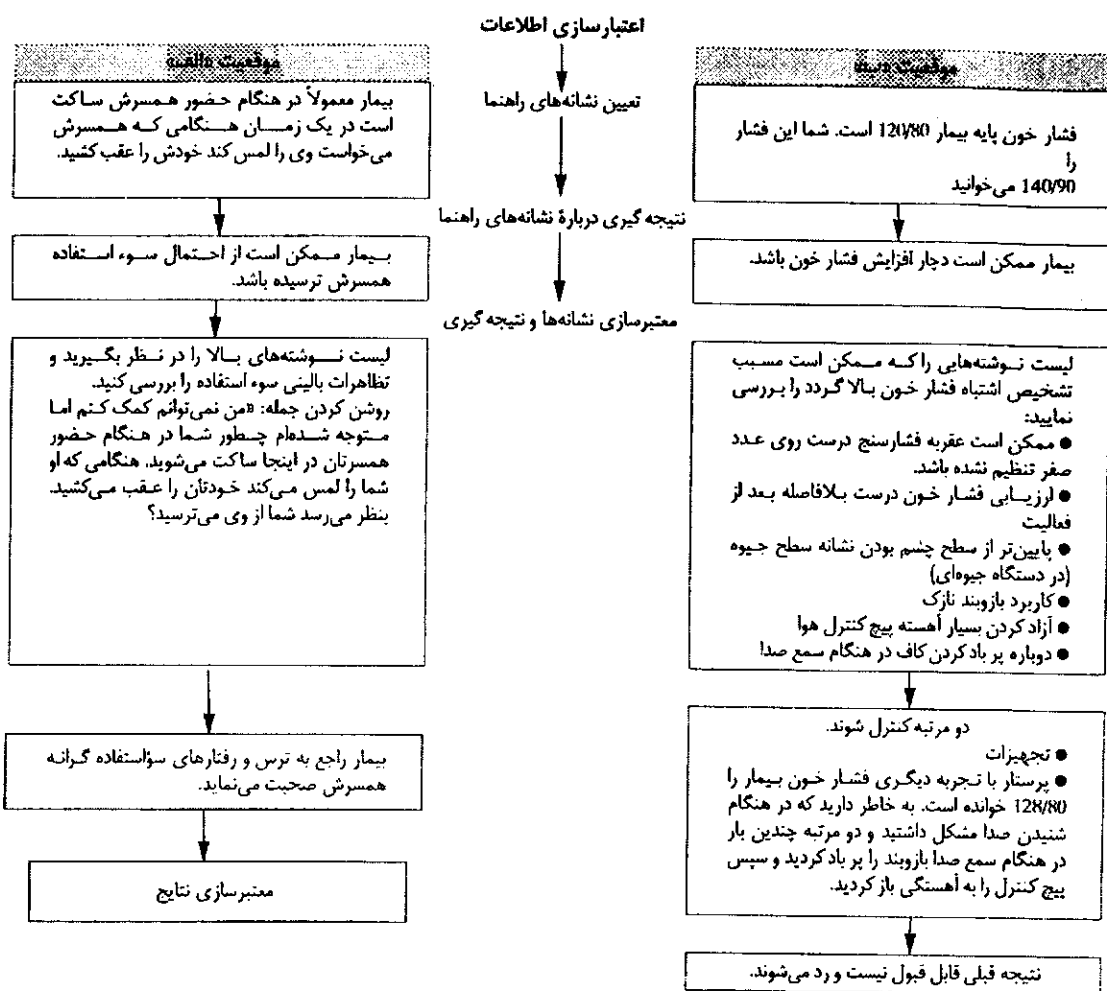 اعتبارسازی اطلاعات
تعیین نشانه‌های راهنما
نتیجه گیری دربارهٔ نشانه‌های راهنما
معتبرسازی نشانه‌ها و نتیجه گیری
موقعیت «ب»
فشار خون پایه بیمار 120/80 است. شما این فشار
را
140/90 می‌خوانید
بیمار ممکن است دچار افزایش فشار خون باشد.
لیست نوشته‌هایی را که ممکن است مسبب
تشخیص اشتباه فشار خون بالا گردد را بررسی
نمایید:
● ممکن است عقربه فشارسنج درست روی عدد
صفر تنظیم نشده باشد.
● ارزیابی فشار خون درست بلافاصله بعد از
فعالیت
● پایین‌تر از سطح چشم بودن نشانه سطح جیوه
(در دستگاه جیوه‌ای)
● کاربرد بازوبند نازک
● آزاد کردن بسیار آهسته پیچ کنترل هوا
● دوباره پر باد کردن کاف در هنگام سمع صدا
دو مرتبه کنترل شوند.
● تجهیزات
● پرستار با تجربه دیگری فشار خون بیمار را
128/80 خوانده است. به خاطر دارید که در هنگام
شنیدن صدا مشکل داشتید و دو مرتبه چندین بار
در هنگام سمع صدا بازوبند را پر باد کردید و سپس
پیچ کنترل را به آهستگی باز کردید.
نتیجه قبلی قابل قبول نیست و رد می‌شوند.
موقعیت «الف»
بیمار معمولاً در هنگام حضور همسرش ساکت
است در یک زمان هنگامی که همسرش
می‌خواست وی را لمس کند خودش را عقب کشید.
بیمار ممکن است از احتمال سوء استفاده
همسرش ترسیده باشد.
لیست نوشته‌های بالا را در نظر بگیرید و
تظاهرات بالینی سوء استفاده را بررسی کنید.
روشن کردن جمله: «من نمی‌توانم کمک کنم اما
متوجه شده‌ام چطور شما در هنگام حضور
همسرتان در اینجا ساکت می‌شوید. هنگامی که او
شما را لمس می‌کند خودتان را عقب می‌کشید.
بنظر می‌رسد شما از وی می‌ترسید؟
بیمار راجع به ترس و رفتارهای سؤاستفاده گرانه
همسرش صحبت می‌نماید.
معتبرسازی نتایج